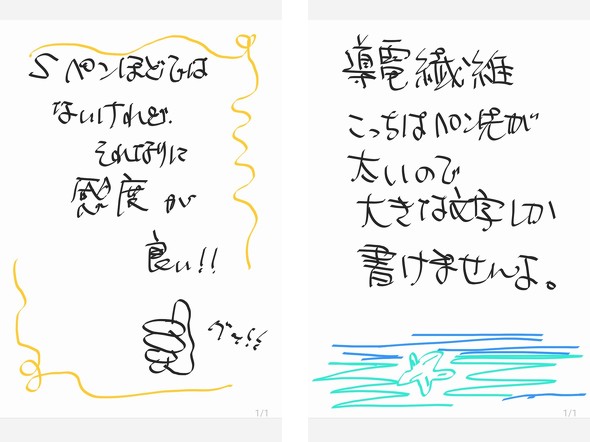 Sペンほどでは
ないけれど、
それなりに
感度が
良い!!
グッ!!
1/1
導電繊維
こっちはペン先が
太いので
大きな文字しか
書けませんよ。
1/1